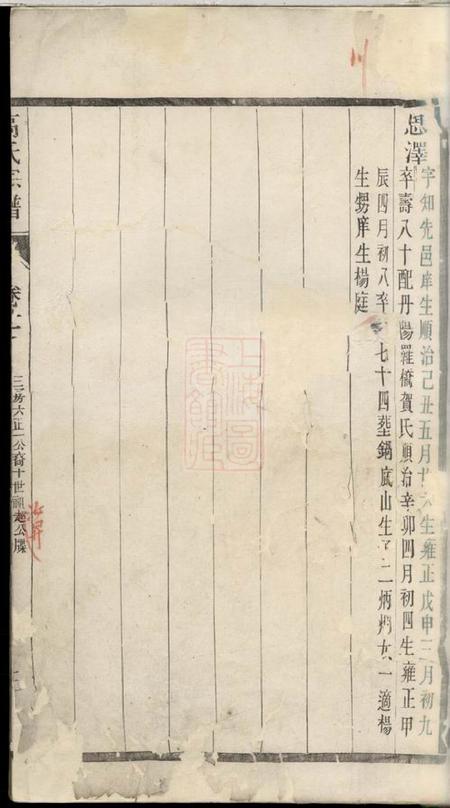 川
思澤
字知先邑庠生順治己丑五月廿六生雍正戊申三月初九
卒壽八十配丹陽羅橋賀氏順治辛卯四月初四生雍正甲
辰四月初八卒 七十四葬鍋底山生子二炳 女一適楊
生甥庠生楊庭
高氏宗譜
卷
三房六正一公裔十世 公牒
上海圖書館